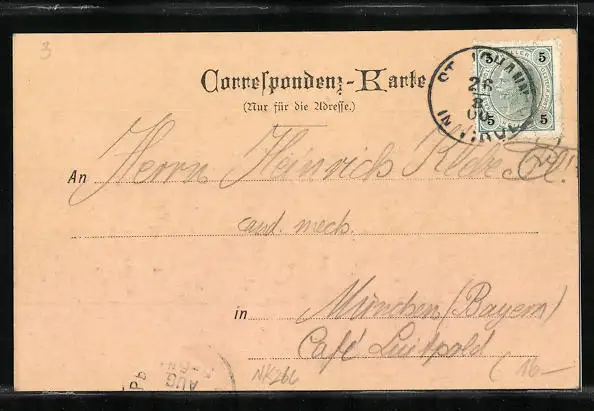 3
Correspondenz-Karte
(Nur für die Adresse.)
5 5
5 5
ST. JOHANN
26
8
00
IN TIROL
An Herrn Heinrich
cand. mech.
in München (Bayern)
Café Luitpold
AUG
NK266
16–